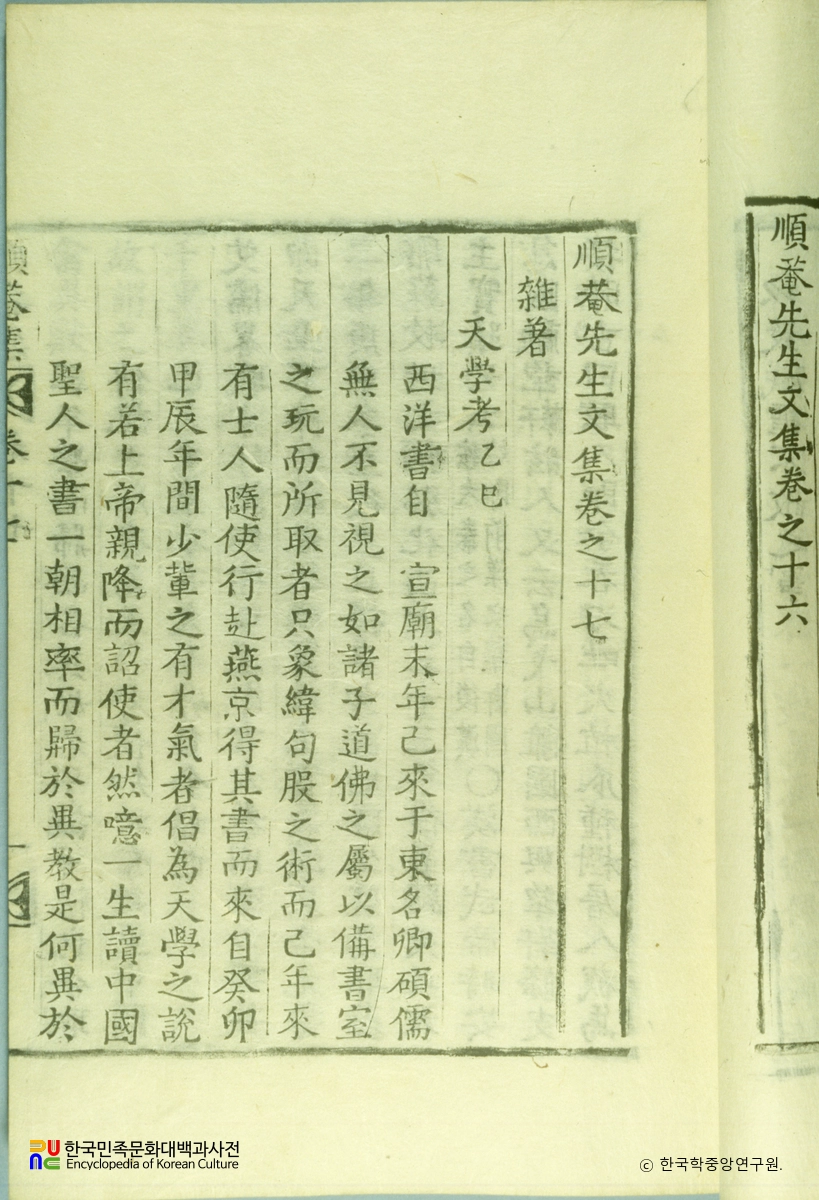 順菴先生文集卷之十六
順菴先生文集卷之十七
雜著
天學考 乙巳
西洋書自 宣廟末年已來于東名卿碩儒
無人不見視之如諸子道佛之屬以備書室
之玩而所取者只象緯句股之術而已年來
有士人隨使行赴燕京得其書而來自癸卯
甲辰年間少軰之有才氣者倡為天學之說
有若上帝親降而詔使者然噫一生讀中國
聖人之書一朝相率而歸於異教是何異於
順菴集 卷十七 一
한국민족문화대백과사전
Encyclopedia of Korean Culture
ⓒ 한국학중앙연구원.